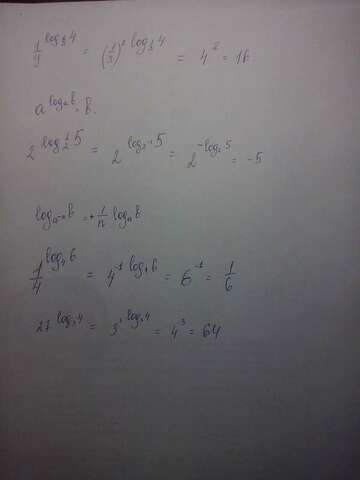 1/9^log_1/3 4 = (1/3)^2 log_1/3 4 = 4^2 = 16
a^log_a b = b.
2^log_1/2 5 = 2^log_2^-1 5 = 2^-log_2 5 = -5
log_a^-n b = +1/n log_a b
1/4^log_4 6 = 4^-1 log_4 6 = 6^-1 = 1/6
27^log_3 4 = 3^3 log_3 4 = 4^3 = 64